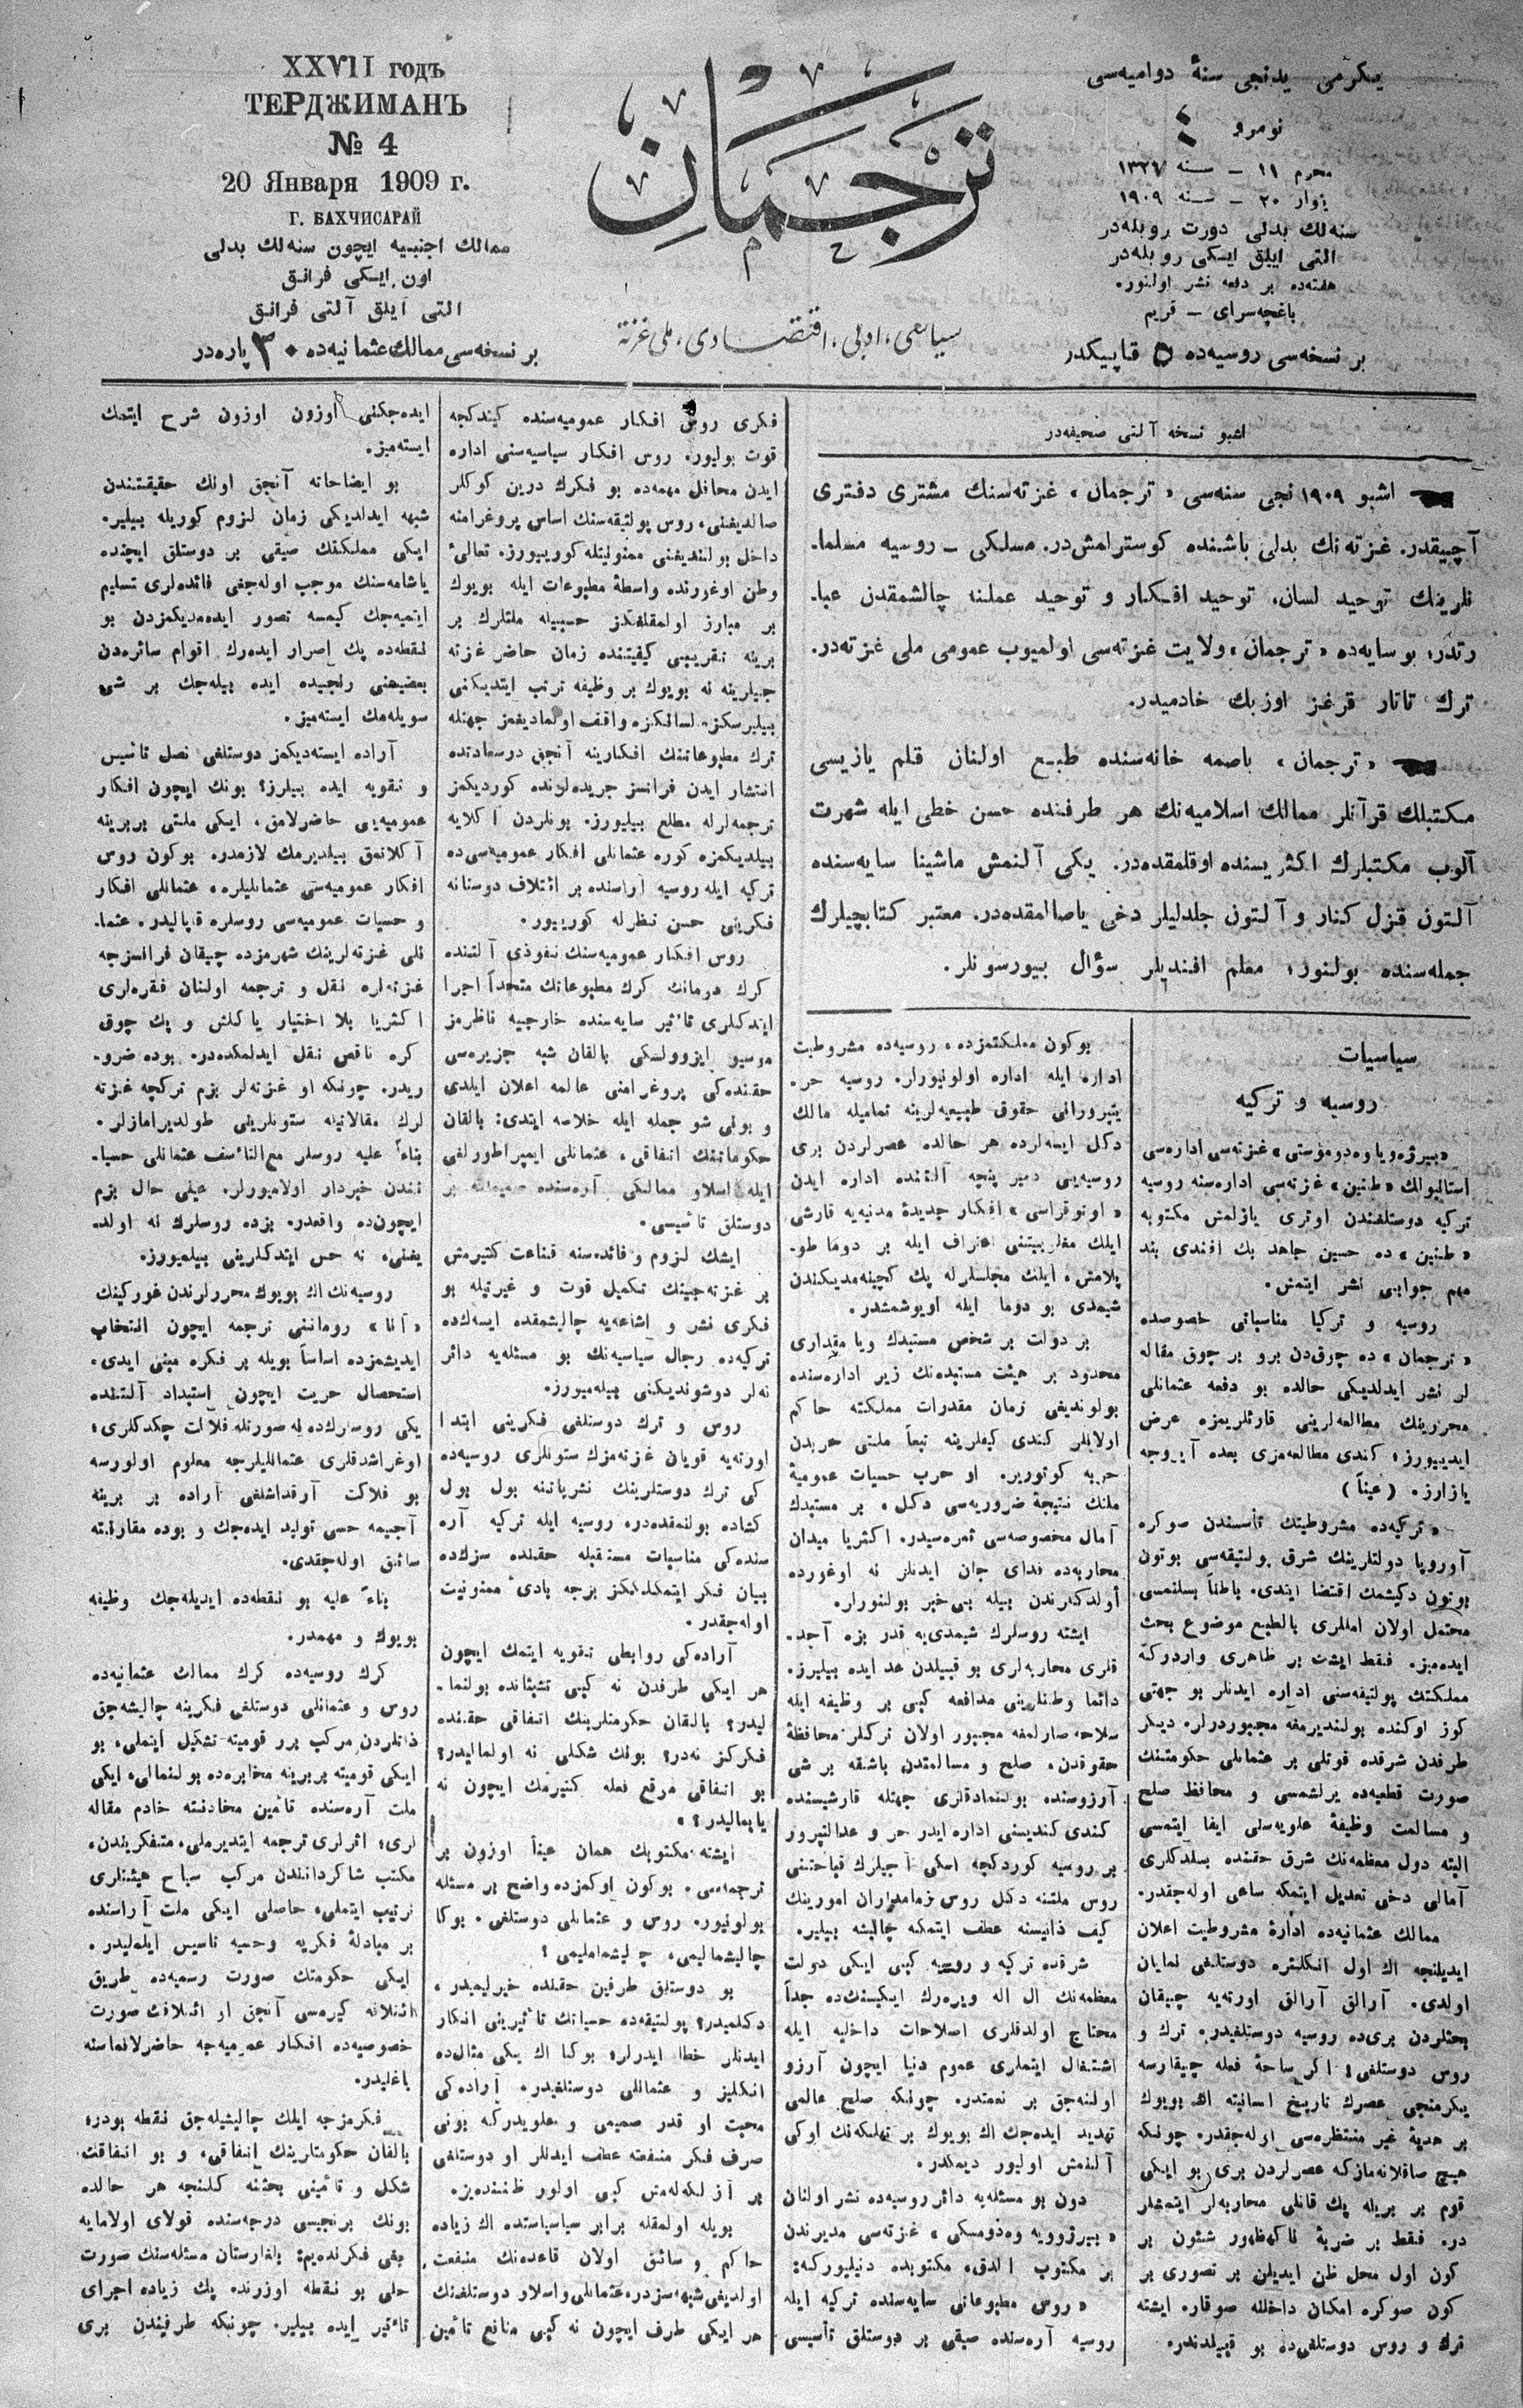 XXVII годъ
ТЕРДЖИМАНЪ
№ 4
20 Января 1909 г.
Г. БАХЧИСАРАЙ
ممالك اجنبيه ايچون سنه‌لك بدلى
اون ايكى فرانق
التى ايلق آلتى فرانق
بر نسخه‌سى ممالك عثمانيه‌ده ۳۰ پاره‌در
ترجمان
سياسى، ادبى، اقتصادى، ملى غزته
يكرمى يدنجى سنهٔ دواميه‌سى
نومرو ٤
محرم ۱۱ — سنه ۱۳۲۷
ينوار ۲۰ — سنه ۱۹۰۹
سنه‌لك بدلى دورت روبله‌در
التى ايلق ايكى روبله‌در
هفته‌ده بر دفعه نشر اولنور.
باغچه‌سراى — قريم
بر نسخه‌سى روسيه‌ده ٥ قاپيكدر
اشبو نسخه آلتى صحيفه‌در
اشبو ۱۹۰۹ نجى سنه‌سى «ترجمان» غزته‌سنك مشترى دفترى
آچيقدر. غزته‌نك بدلى باشنده كوسترلمش‌در. مسلكى — روسيه مسلما-
نلرينك توحيد لسان، توحيد افكار و توحيد عملنه چالشمقدن عبا-
رتدر؛ بو سايه‌ده «ترجمان» ولايت غزته‌سى اولميوب عمومى ملى غزته‌در.
ترك تاتار قرغز اوزبك خادميدر.
«ترجمان» باصمه خانه‌سنده طبع اولنان قلم يازيسى
مكتبلك قرآنلر ممالك اسلاميه‌نك هر طرفنده حسن خطى ايله شهرت
آلوب مكتبلرك اكثريسنده اوقلمقده‌در. يكى آلنمش ماشينا سايه‌سنده
آلتون قزل كنار و آلتون جلدليلر دخى ياصالمقده‌در. معتبر كتابچيلرك
جمله‌سنده بولنور؛ معلم افنديلر سؤال بيورسونلر.
سياسيات
روسيه و تركيه
استانبولك «طنين» غزته‌سى اداره‌سنه روسيه
تركيه دوستلغندن اوترى يازلمش مكتوبه
«طنين» ده حسين جاهد بك افندى بند
مهم جوابى نشر ايتمش.
روسيه و تركيا مناسباتى خصوصده
«ترجمان» ده چوق‌دن برو بر چوق مقاله
لر نشر ايدلديكى حالده بو دفعه عثمانلى
محررينك مطالعه‌لرينى قارئلريمزه عرض
ايدييورز؛ كندى مطالعه‌مزى بعده آيروجه
يازارز. (عيناً)
«تركيه‌ده مشروطيتك تأسسندن صوكره
آوروپا دولتلرينك شرق پولتيقه‌سى بوتون
بوتون دكيشمك اقتضا ايتدى. باطناً بسلنمسى
محتمل اولان امللرى بالطبع موضوع بحث
ايده‌ميز. فقط ايشك بر ظاهرى واردركه
مملكتك پولتيقه‌سنى اداره ايدنلر بو جهتى
كوز اوكنده بولنديرمغه مجبوردرلر. ديكر
طرفدن شرقده قوتلى بر عثمانلى حكومتنك
صورت قطعيه‌ده يرلشمسى و محافظ صلح
و مسالمت وظيفهٔ علويه‌سنى ايفا ايتمسى
البته دول معظمه‌نك شرق حقنده بسلدكلرى
آمالى دخى تعديل ايتمكه ساعى اوله‌جقدر.
ممالك عثمانيه‌ده ادارهٔ مشروطيت اعلان
ايديلنجه اك اول انكلتره دوستلغى نمايان
اولدى. آرالق آرالق اورته‌يه چيقان
بحثلردن برى‌ده روسيه دوستلغيدر. ترك و
روس دوستلغى؛ اكر ساحهٔ فعله چيقارسه
يكرمنجى عصرك تاريخ انسانيته اك بويوك
بر هديهٔ غير منتظره‌سى اوله‌جقدر. چونكه
هيچ صاقلانه‌مازكه عصرلردن برى بو ايكى
قوم بر بريله پك قانلى محاربه‌لر ايتمشلر
در. فقط بر ضربهٔ ناكهظهور شئون بر
كون اول محل ظن ايديلن بر تصورى بر
كون صوكره امكان داخلنه صوقار. ايشته
ترك و روس دوستلغى‌ده بو قبيلدندر.
بوكون مملكتمزده، روسيه‌ده مشروطيت
اداره ايله اداره اولونيورلر. روسيه حر-
يتپرورانى حقوق طبيعيه‌لرينه تماميله مالك
دكل ايسه‌لرده هر حالده عصرلردن برى
روسيه‌يى دمير پنجه آلتنده اداره ايدن
«اوتوقراسى» افكار جديدهٔ مدنيه‌يه قارشى
ايلك مغلوبيتنى اعتراف ايله بر دوما طو-
پلامش، ايلك مجلسلرله پك كچينه‌مديكندن
شيمدى بو دوما ايله اويوشمشدر.
بر دولت بر شخص مستبدك ويا مقدارى
محدود بر هيئت مستبده‌نك زير اداره‌سنده
بولونديغى زمان مقدرات مملكته حاكم
اولانلر كندى كيفلرينه تبعاً ملتى حربدن
حربه كوتورير. او حرب حسيات عموميهٔ
ملتك نتيجهٔ ضروريه‌سى دكل، بر مستبدك
آمال مخصوصه‌سى ثمره‌سيدر. اكثريا ميدان
محاربه‌ده فداى جان ايدنلر نه اوغورده
أولدكلرندن بيله بى خبر بولنورلر.
ايشته روسلرك شيمدى‌يه قدر بزه آجد-
قلرى محاربه‌لرى بو قبيلدن عد ايده بيليرز.
دائما وطنلرينى مدافعه كبى بر وظيفه ايله
سلاحه صارلمغه مجبور اولان تركلر محافظهٔ
حقوقدن، صلح و مسالمتدن باشقه بر شى
آرزوسنده بولنمادقلرى جهتله قارشيسنده
كندى كنديسنى اداره ايدر حر و عدالتپرور
بر روسيه كوردكجه اسكى آجيلرك قباحتنى
روس ملتنه دكل روس زمامداران امورينك
كيف ذاتيسنه عطف ايتمكه چاليشه بيلير.
شرقده تركيه و روسيه كبى ايكى دولت
معظمه‌نك ال اله ويره‌رك ايكيسنك‌ده جداً
محتاج اولدقلرى اصلاحات داخليه ايله
اشتغال ايتملرى عموم دنيا ايچون آرزو
اولنه‌جق بر نعمتدر. چونكه صلح عالمى
تهديد ايده‌جك اك بويوك بر تهلكه‌نك اوكى
آلنمش اوليور ديمكدر.
دون بو مسئله‌يه دائر روسيه‌ده نشر اولنان
غزته‌سى مديرندن
بر مكتوب الدق، مكتوبده دنيليوركه:
«روس مطبوعاتى سايه‌سنده تركيه ايله
روسيه آره‌سنده صيقى بر دوستلق تأسيسى
فكرى روس افكار عموميه‌سنده كيتدكچه
قوت بوليور. روس افكار سياسيه‌سنى اداره
ايدن محافل مهمه‌ده بو فكرك درين كوكلر
صالديغنى، روس پولتيقه‌سنك اساس پروغرامنه
داخل بولنديغنى ممنونيتله كورييورز. تعالئ
وطن اوغورنده واسطهٔ مطبوعات ايله بويوك
بر مبارز اولمقلغكز حسبيله ملتلرك بر
برينه تقريبى كيفيتنده زمان حاضر غزته
جيلرينه نه بويوك بر وظيفه ترتب ايتديكنى
بيليرسكز. لسانكزه واقف اولماديغمز جهتله
ترك مطبوعاتنك افكارينه آنجق درسعادتده
انتشار ايدن فرانسز جريده‌لرنده كورديكمز
ترجمه‌لرله مطلع بيليورز. بونلردن آكلايه
بيلديكمزه كوره عثمانلى افكار عموميه‌سى‌ده
تركيه ايله روسيه آراسنده بر ائتلاف دوستانه
فكرينى حسن نظرله كورييور.
روس افكار عموميه‌سنك نفوذى آلتنده
كرك دومانك كرك مطبوعاتك متحداً اجرا
ايتدكلرى تأثير سايه‌سنده خارجيه ناظرمز
موسيو ايزوولسكى بالقان شبه جزيره‌سى
حقنده‌كى پروغرامنى عالمه اعلان ايلدى
و بونى شو جمله ايله خلاصه ايتدى: بالقان
حكوماتنك اتفاقى، عثمانلى ايمپراطورلغى
ايله اسلاو ممالكى آره‌سنده صميمانه بر
دوستلق تأسيسى.
ايشك لزوم و فائده‌سنه قناعت كتيرمش
بر غزته‌جينك تكميل قوت و غيرتيله بو
فكرى نشر و اشاعه‌يه چاليشمقده ايسه‌كده
تركيه‌ده رجال سياسيه‌نك بو مسئله‌يه دائر
نه‌لر دوشونديكنى بيله‌ميورز.
روس و ترك دوستلغى فكرينى ابتدا
اورته‌يه قويان غزته‌مزك ستونلرى روسيه‌ده
كى ترك دوستلرينك نشرياتنه بول بول
كشاده بولنمقده‌در، روسيه ايله تركيه آره
سنده‌كى مناسبات مستقبله حقنده سزك‌ده
بيان فكر ايتمكلككز بزجه بادئ ممنونيت
اوله‌جقدر.
آراده‌كى روابطى تقويه ايتمك ايچون
هر ايكى طرفدن نه كبى تشبثاتده بولنما-
ليدر؟ بالقان حكومتلرينك اتفاقى حقنده
فكركز نه‌در؟ بونك شكلى نه اولماليدر؟
بو اتفاقى موقع فعله كتيرمك ايچون نه
ياپماليدر؟»
ايشته مكتوبك همان عيناً اوزون بر
ترجمه‌سى. بوكون اوكمزده واضح بر مسئله
بولونيور. روس و عثمانلى دوستلغى. بوكا
چاليشماليمى، چاليشمامليمى؟
بو دوستلق طرفين حقنده خيرليميدر،
دكلميدر؟ پولتيقه‌ده حسياتك تأثيرينى انكار
ايدنلر خطا ايدرلر؛ بوكا اك يكى مثال‌ده
انكليز و عثمانلى دوستلغيدر. آراده‌كى
محبت او قدر صميمى و علويدركه بونى
صرف فكر منفعته عطف ايدنلر او دوستلغى
بر از لكه‌له‌مش كبى اولور ظننده‌يز.
بويله اولمقله برابر سياسياتده اك زياده
حاكم و سائق اولان قاعده‌نك منفعت
اولديغى شبهه‌سزدر، عثمانلى و اسلاو دوستلغنك
هر ايكى طرف ايچون نه كبى منافع تأمين
ايده‌جكنى اوزون اوزون شرح ايتمك
ايسته‌ميز.
بو ايضاحاته آنجق اونك حقيقتندن
شبهه ايدلديكى زمان لزوم كوريله بيلير.
ايكى مملكتك صيقى بر دوستلق ايچنده
ياشامه‌سنك موجب اوله‌جغى فائده‌لرى تسليم
ايتميه‌جك كيمسه تصور ايده‌مديكمزدن بو
نقطه‌ده پك اصرار ايده‌رك اقوام سائره‌دن
بعضيهنى رنجيده ايده بيله‌جك بر شى
سويله‌مك ايسته‌ميز.
آراده ايسته‌ديكمز دوستلغى نصل تأسيس
و تقويه ايده بيليرز؟ بونك ايچون افكار
عموميه‌يى حاضرلامق، ايكى ملتى بربرينه
آكلاتمق بيلديرمك لازمدر. بوكون روس
افكار عموميه‌سى عثمانليلره، عثمانلى افكار
و حسيات عموميه‌سى روسلره قپاليدر. عثما-
نلى غزته‌لرينك شهرمزده چيقان فرانسزجه
غزته‌لره نقل و ترجمه اولنان فقره‌لرى
اكثريا بلا اختيار ياكلش و پك چوق
كره ناقص نقل ايدلمكده‌در. بوده ضرو-
ريدر. چونكه او غزته‌لر بزم تركچه غزته
لرك مقالاتيله ستونلرينى طولديرامازلر.
بناءً عليه روسلر مع التأسف عثمانلى حسيا-
تندن خبردار اولاميورلر. عينى حال بزم
ايچون‌ده واقعدر. بزده روسلرك نه اولد-
يغنى، نه حس ايتدكلرينى بيلميورز.
روسيه‌نك اك بويوك محررلرندن غوركينك
«آنا» رومانى ترجمه ايچون انتخاب
ايديشمزده اساساً بويله بر فكره مبنى ايدى.
استحصال حريت ايچون استبداد آلتنده
يكى روسلرك‌ده نه صورتله فلاكت چكدكلرى؛
اوغراشدقلرى عثمانليلرجه معلوم اولورسه
بو فلاكت آرقداشلغى آراده بر برينه
آجيمه حسى توليد ايده‌جك و بوده مقارنته
سائق اوله‌جقدى.
بناءً عليه بو نقطه‌ده ايديله‌جك وظيفه
بويوك و مهمدر.
كرك روسيه‌ده كرك ممالك عثمانيه‌ده
روس و عثمانلى دوستلغى فكرينه چاليشه‌جق
ذاتلردن مركب برر قوميته تشكيل ايتملى، بو
ايكى قوميته بربرينه مخابره‌ده بولنمالى، ايكى
ملت آره‌سنده تأمين مخادنته خادم مقاله
لرى؛ اثرلرى ترجمه ايتديرملى، متفكريندن،
مكتب شاكرداننندن مركب سياح هيئتلرى
ترتيب ايتملى، حاصلى ايكى ملت آراسنده
بر مبادلهٔ فكريه و حسيه تأسيس ايله‌ليدر.
ايكى حكومتك صورت رسميه‌ده طريق
ائتلافه كيره‌سى آنجق او ائتلافك صورت
خصوصيه‌ده افكار عموميه‌جه حاضرلانماسنه
باغليدر.
فكرمزجه ايلك چاليشيله‌جق نقطه بودر؛
بالقان حكومتلرينك اتفاقى، و بو اتفاقك
شكل و تأمينى بحثنه كلنجه هر حالده
بونك برنجيسى درجه‌سنده قولاى اولامايه
جغى فكرنده‌يم: بلغارستان مسئله‌سنك صورت
حلى بو نقطه اوزرنده پك زياده اجراى
تأثير ايده بيلير. چونكه طرفيندن برى